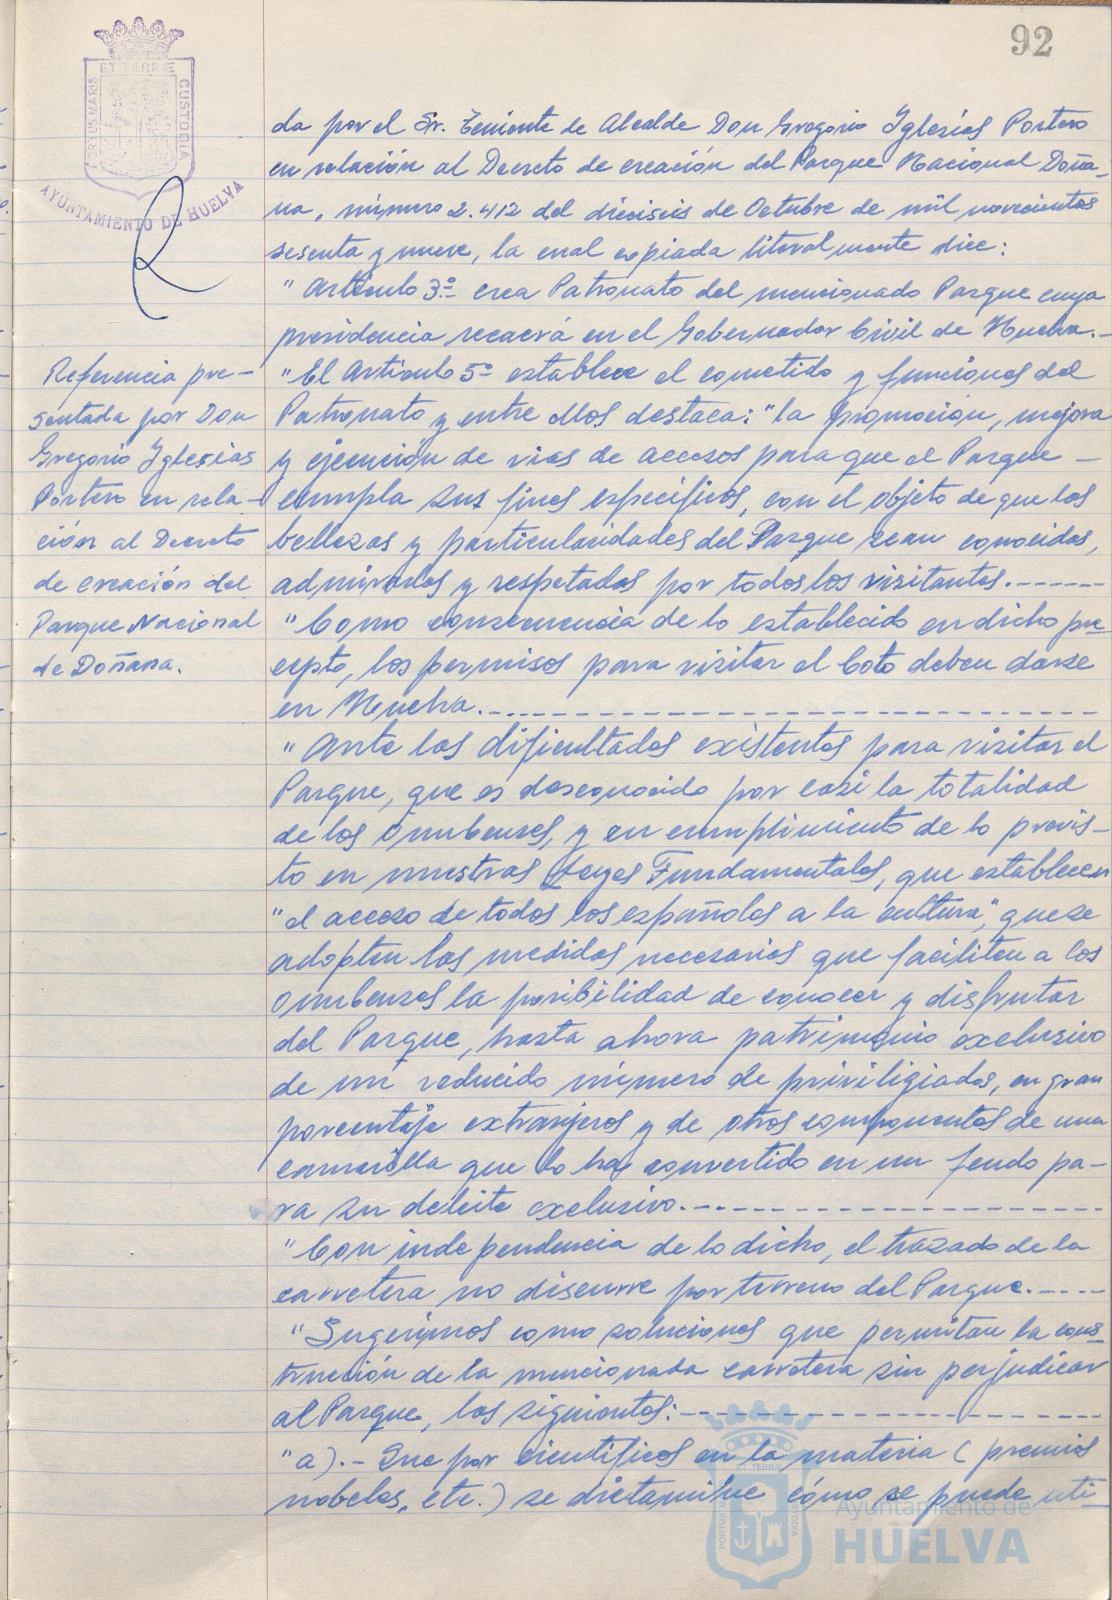 92
ET TERRÆ
PORTUS MARIS
CUSTODIA
AYUNTAMIENTO DE HUELVA
da por el Sr. Teniente de Alcalde Don Gregorio Iglesias Portero
en relación al Decreto de creación del Parque Nacional Doña-
na, número 2.412 del dieciseis de Octubre de mil novecientos
sesenta y nueve, la cual copiada literalmente dice:
" Artículo 3º crea Patronato del mencionado Parque cuya
presidencia recaerá en el Gobernador Civil de Huelva.-
"El Artículo 5º establece el cometido y funciones del
Patronato y entre ellos destaca: "la promoción, mejora
y ejecución de vias de accesos para que el Parque -
cumpla sus fines específicos, con el objeto de que las
bellezas y particularidades del Parque sean conocidas,
admiradas y respetadas por todos los visitantes.------
"Como consecuencia de lo establecido en dicho pre-
cepto, los permisos para visitar el Coto deben darse
en Huelva.------------------------------
"Ante las dificultades existentes para visitar el
Parque, que es desconocido por casi la totalidad
de los Onubenses, y en cumplimiento de lo previs-
to en nuestras Leyes Fundamentales, que establecen
"el acceso de todos los españoles a la cultura", que se
adopten las medidas necesarias que faciliten a los
Onubenses la posibilidad de conocer y disfrutar
del Parque, hasta ahora patrimonio exclusivo
de un reducido número de priviligiados, en gran
porcentaje extranjeros y de otros componentes de una
camarilla que lo ha convertido en un feudo pa-
ra su deleite exclusivo.--------------------
"Con independencia de lo dicho, el trazado de la
carretera no discurre por terreno del Parque.-----
"Sugerimos como soluciones que permitan la cons-
trucción de la mencionada carretera sin perjudicar
al Parque, las siguientes:--------------------
"a).- Que por científicos en la materia (premios
nobeles, etc.) se dictamine cómo se puede uti-
Referencia pre-
sentada por Don
Gregorio Iglesias
Portero en rela-
ción al Decreto
de creación del
Parque Nacional
de Doñana.
ET TERRÆ
PORTUS MARIS
CUSTODIA
Ayuntamiento de
HUELVA